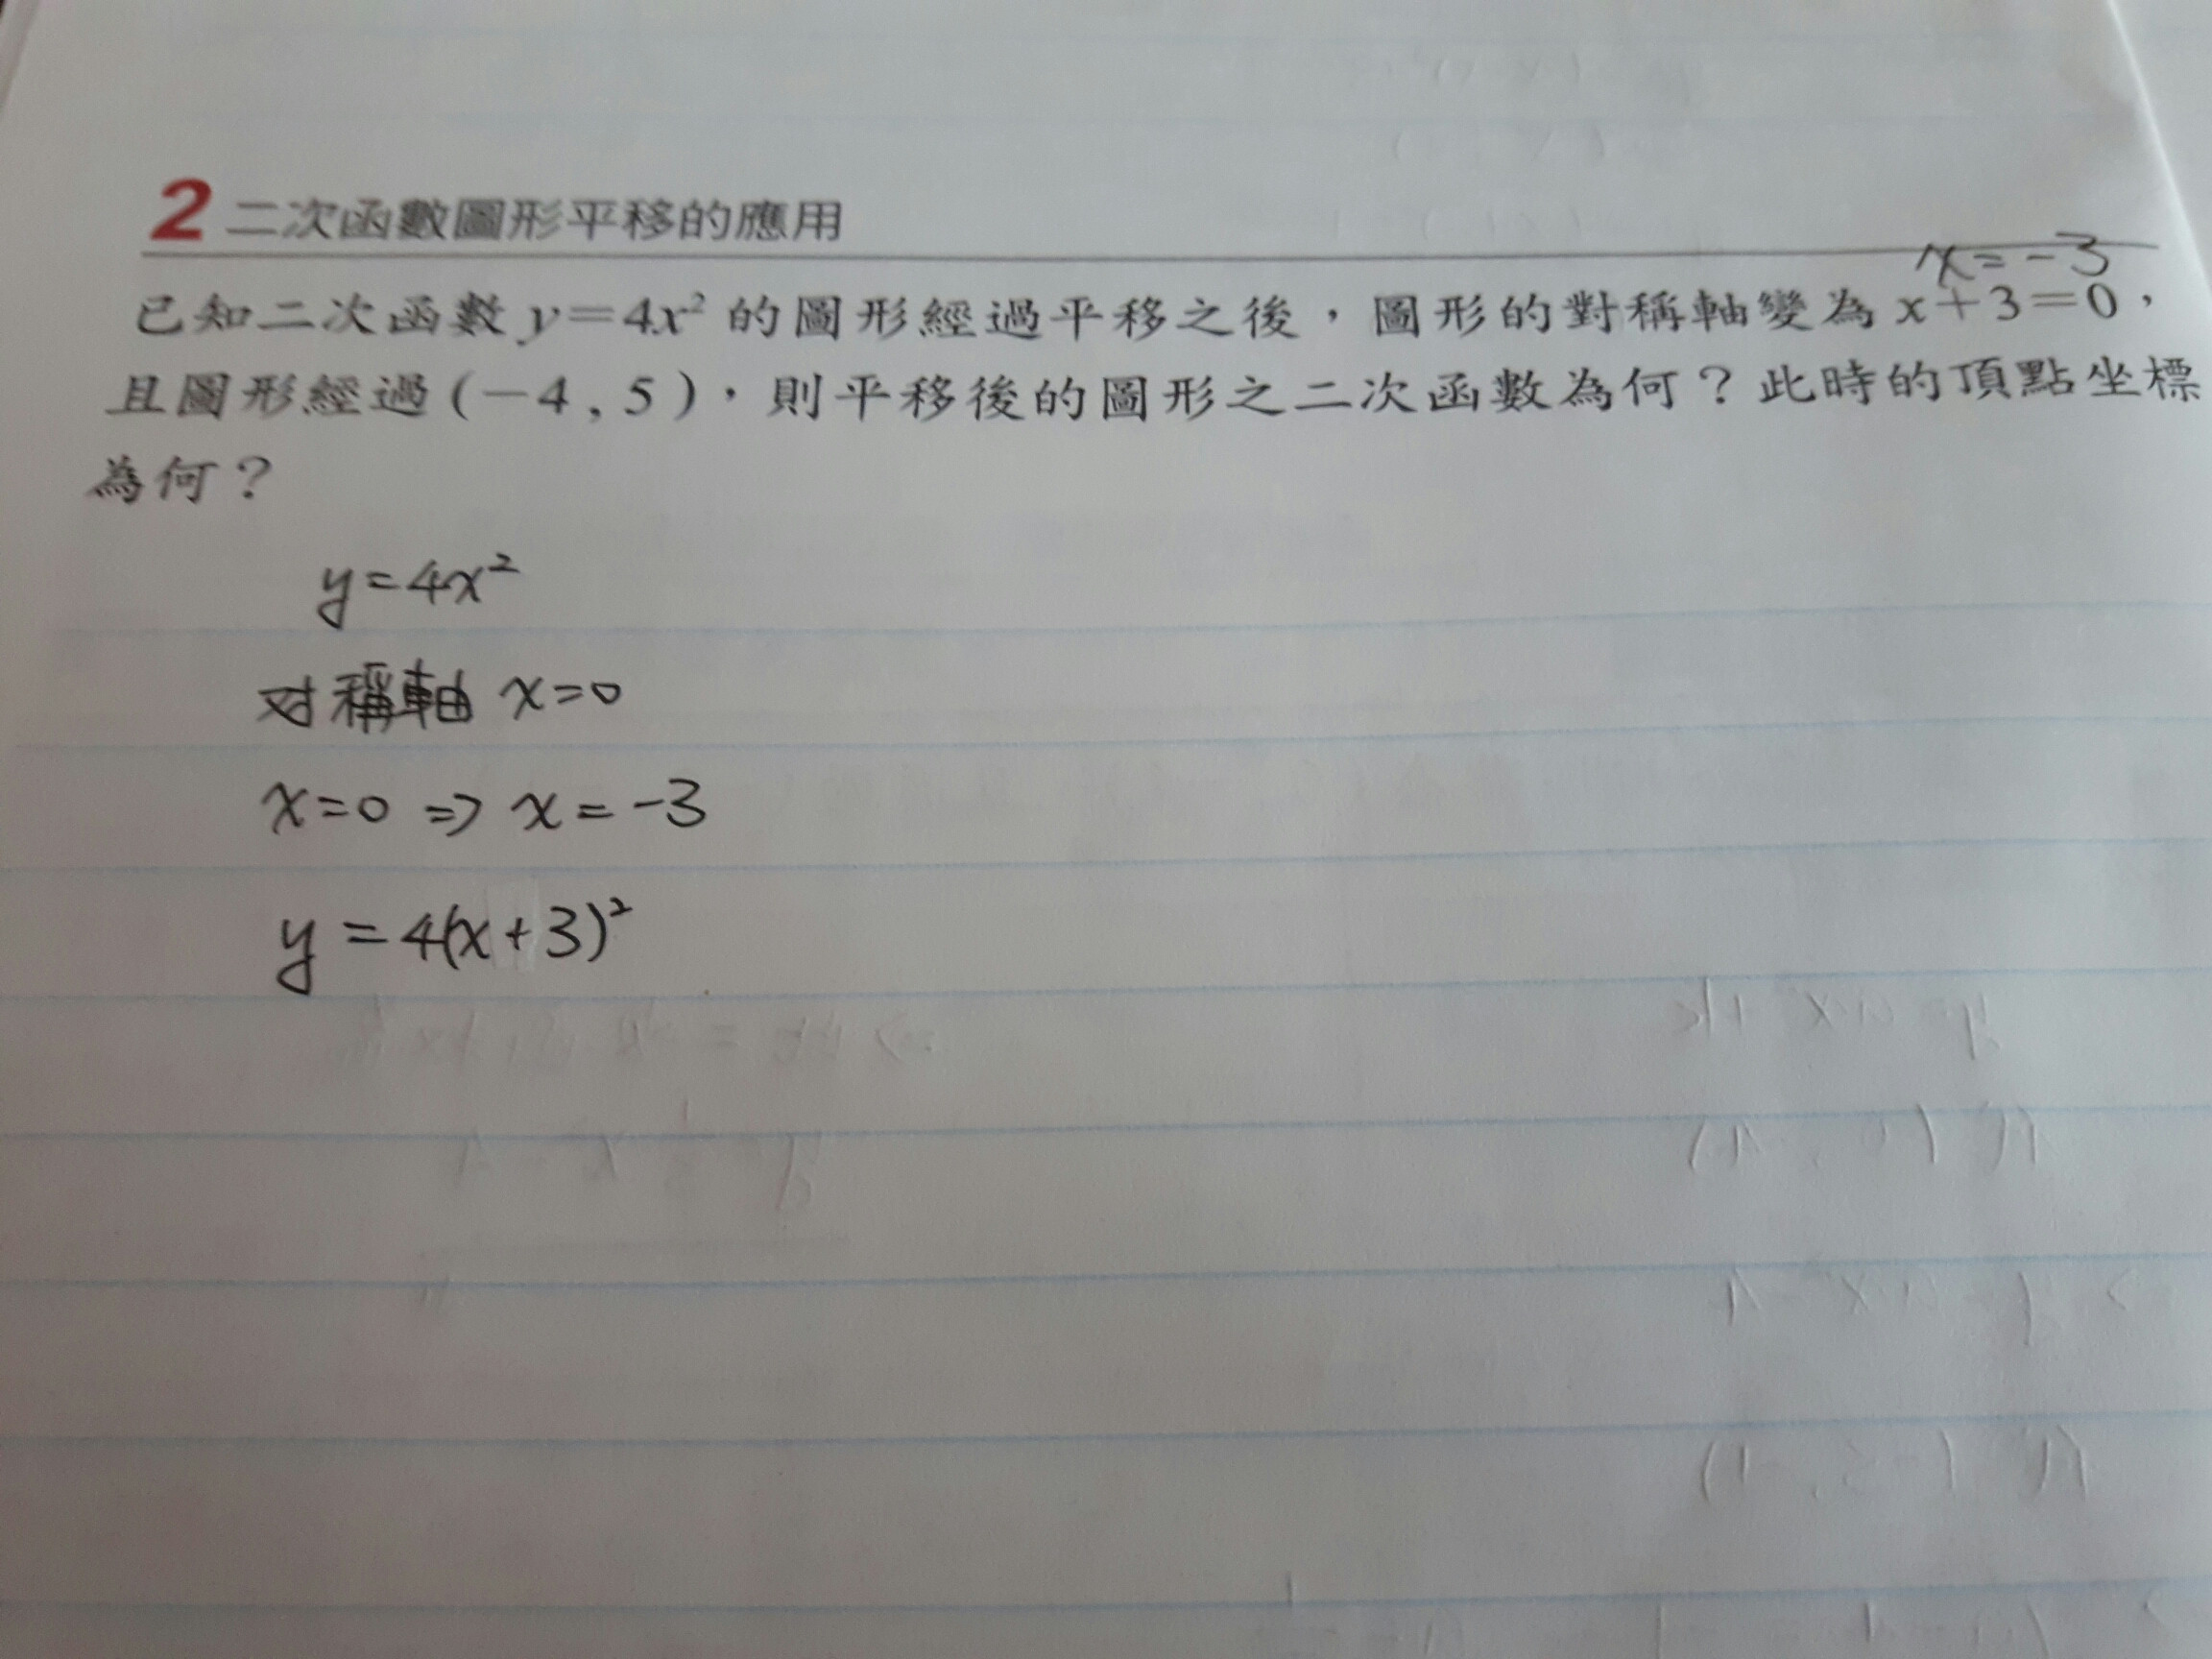 2 二次函數圖形平移的應用
x=-3
已知二次函數 y=4x² 的圖形經過平移之後,圖形的對稱軸變為 x+3=0,
且圖形經過(-4,5),則平移後的圖形之二次函數為何?此時的頂點坐標
為何?
y=4x²
对稱軸 x=0
x=0 => x=-3
y=4(x+3)²